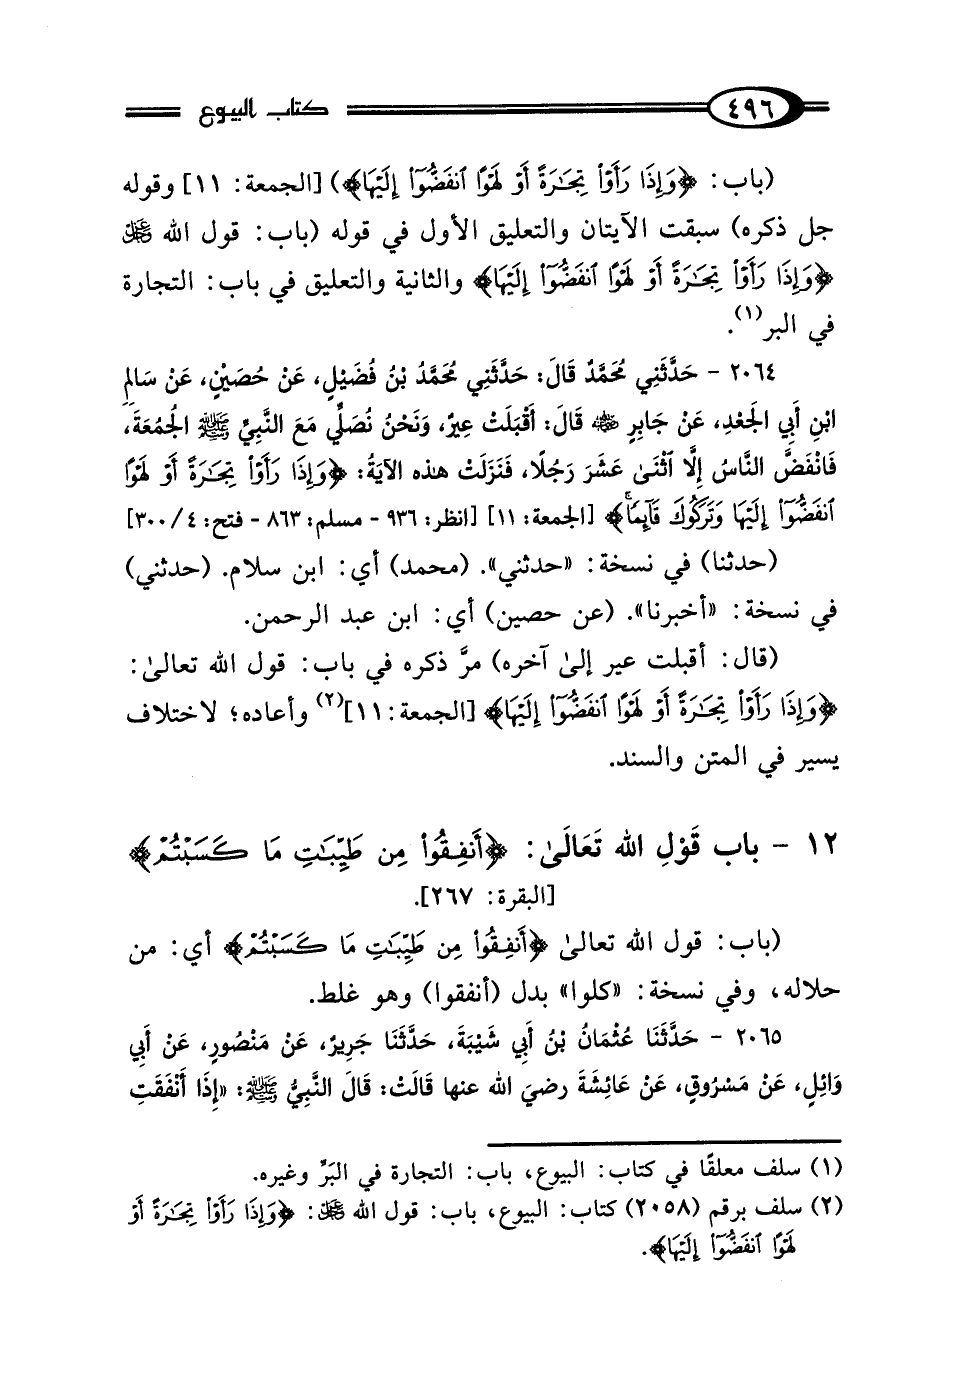 ٤٩٦ كتاب البيوع
(باب: ﴿وَإِذَا رَأَوْا۟ تِجَـٰرَةً أَوْ لَهْوًا ٱنفَضُّوٓا۟ إِلَيْهَا﴾) [الجمعة: ١١] وقوله
جل ذكره) سبقت الآيتان والتعليق الأول في قوله (باب: قول الله ﷿
﴿وَإِذَا رَأَوْا۟ تِجَـٰرَةً أَوْ لَهْوًا ٱنفَضُّوٓا۟ إِلَيْهَا﴾ والثانية والتعليق في باب: التجارة
في البر(١).
٢٠٦٤ - حَدَّثَنِي مُحَمَّدٌ قَالَ: حَدَّثَنِي مُحَمَّدُ بْنُ فُضَيْلٍ، عَنْ حُصَيْنٍ، عَنْ سَالِمِ
ابْنِ أَبِي الجَعْدِ، عَنْ جَابِرٍ ﵁ قَالَ: أَقْبَلَتْ عِيرٌ، وَنَحْنُ نُصَلِّي مَعَ النَّبِيِّ ﷺ الجُمُعَةَ،
فَانْفَضَّ النَّاسُ إِلَّا اثْنَىْ عَشَرَ رَجُلًا، فَنَزَلَتْ هذه الآيَةُ: ﴿وَإِذَا رَأَوْا۟ تِجَـٰرَةً أَوْ لَهْوًا
ٱنفَضُّوٓا۟ إِلَيْهَا وَتَرَكُوكَ قَآئِمًاۚ﴾ [الجمعة: ١١] [انظر: ٩٣٦ - مسلم: ٨٦٣ - فتح: ٤/ ٣٠٠]
(حدثنا) في نسخة: «حدثني». (محمد) أي: ابن سلام. (حدثني)
في نسخة: «أخبرنا». (عن حصين) أي: ابن عبد الرحمن.
(قال: أقبلت عير إلىٰ آخره) مرَّ ذكره في باب: قول الله تعالىٰ:
﴿وَإِذَا رَأَوْا۟ تِجَـٰرَةً أَوْ لَهْوًا ٱنفَضُّوٓا۟ إِلَيْهَا﴾ [الجمعة: ١١](٢) وأعاده؛ لاختلاف
يسير في المتن والسند.
١٢ - باب قَوْلِ الله تَعَالَىٰ: ﴿أَنفِقُوا۟ مِن طَيِّبَـٰتِ مَا كَسَبْتُمْ﴾
[البقرة: ٢٦٧].
(باب: قول الله تعالىٰ ﴿أَنفِقُوا۟ مِن طَيِّبَـٰتِ مَا كَسَبْتُمْ﴾ أي: من
حلاله، وفي نسخة: «كلوا» بدل (أنفقوا) وهو غلط.
٢٠٦٥ - حَدَّثَنَا عُثْمَانُ بْنُ أَبِي شَيْبَةَ، حَدَّثَنَا جَرِيرٌ، عَنْ مَنْصُورٍ، عَنْ أَبِي
وَائِلٍ، عَنْ مَسْرُوقٍ، عَنْ عَائِشَةَ رضيَ الله عنها قَالَتْ: قَالَ النَّبِيُّ ﷺ: «إِذَا أَنْفَقَتِ
(١) سلف معلقًا في كتاب: البيوع، باب: التجارة في البَرِّ وغيره.
(٢) سلف برقم (٢٠٥٨) كتاب: البيوع، باب: قول الله ﷿: ﴿وَإِذَا رَأَوْا۟ تِجَـٰرَةً أَوْ
لَهْوًا ٱنفَضُّوٓا۟ إِلَيْهَا﴾.